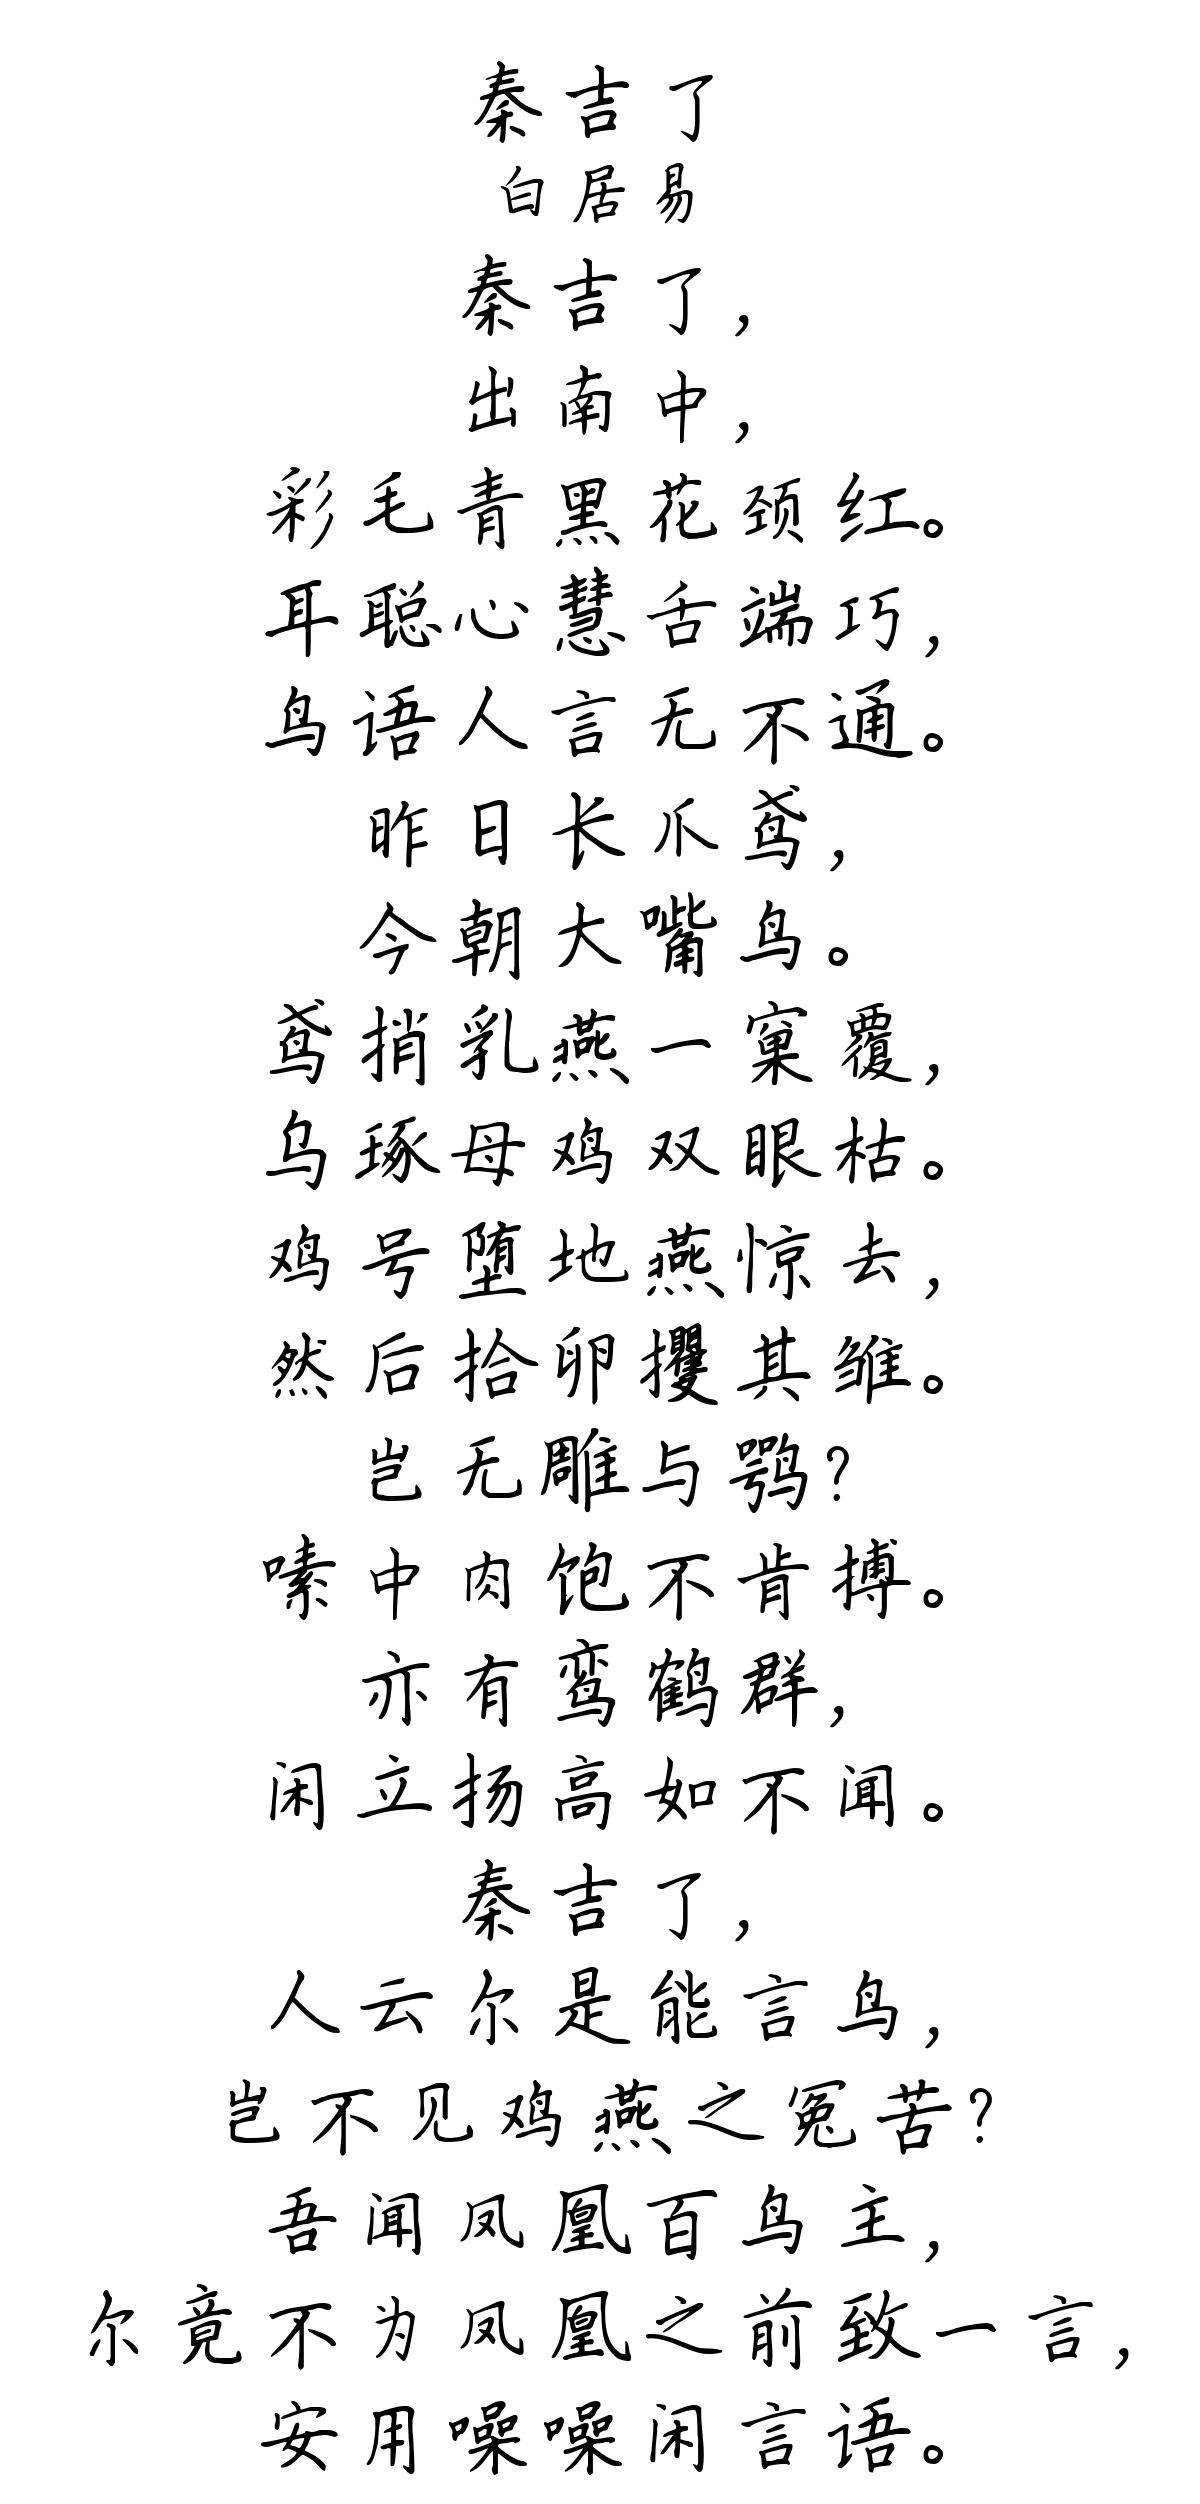 秦吉了
白居易
秦吉了，
出南中，
彩毛青黑花项红。
耳聪心慧舌端巧，
鸟语人言无不通。
昨日长爪鸢，
今朝大嘴鸟。
鸢捎乳燕一窠覆，
乌琢母鸡双眼枯。
鸡号堕地燕惊去，
然后拾卵攫其雏。
岂无雕与鹗？
嗉中肉饱不肯搏。
亦有鸾鹤群，
闲立扬高如不闻。
秦吉了，
人云尔是能言鸟，
岂不见鸡燕之冤苦？
吾闻凤凰百鸟主，
尔竟不为凤凰之前致一言，
安用噪噪闲言语。